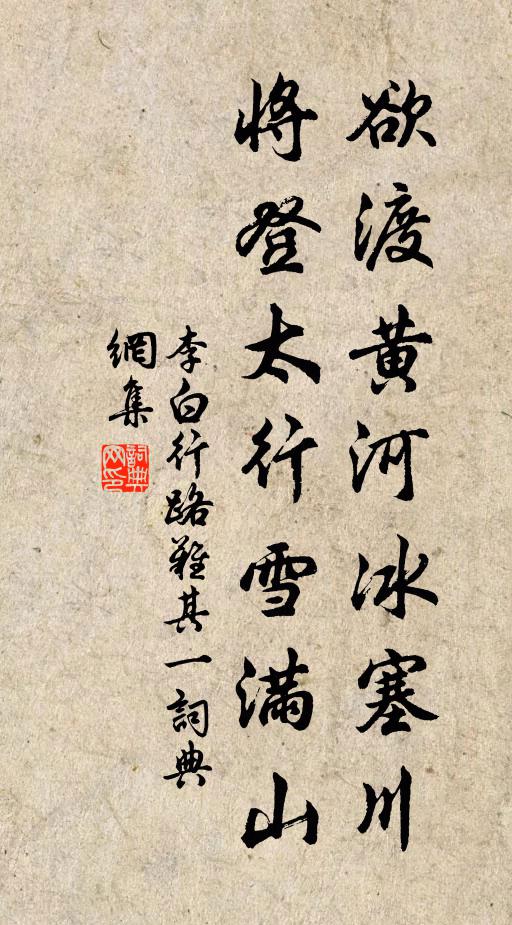 欲渡黄河冰塞川
將登太行雪滿山
李白行路難其一詞典
網集
詞典
网印